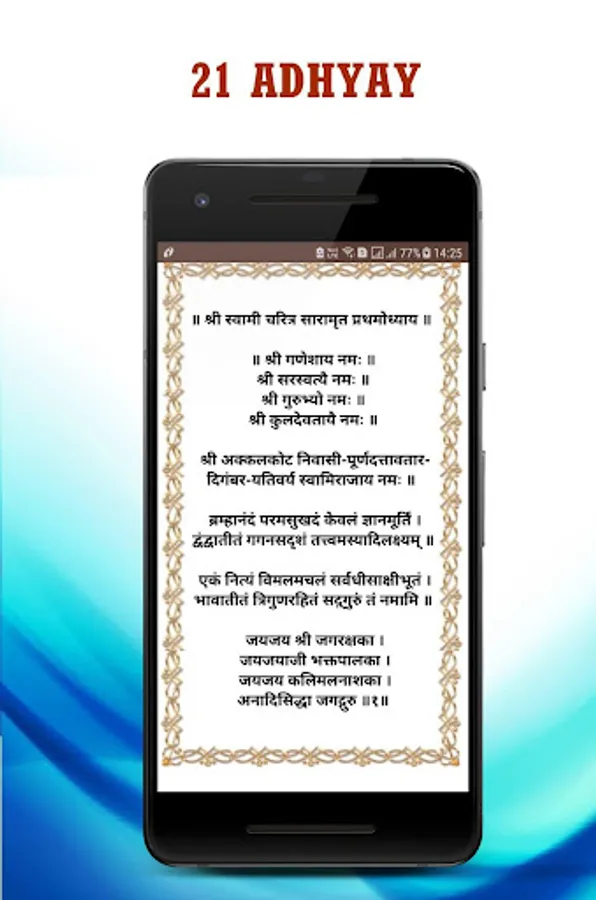 21 ADHYAY
77% 14:25
॥ श्री स्वामी चरित्र सारामृत प्रथमोध्याय ॥
॥ श्री गणेशाय नमः ॥
श्री सरस्वत्यै नमः ॥
श्री गुरुभ्यो नमः ॥
श्री कुलदेवतायै नमः ॥
श्री अक्कलकोट निवासी-पूर्णदत्तावतार-
दिगंबर-यतिवर्य स्वामिराजाय नमः ॥
ब्रम्हानंदं परमसुखदं केवलं ज्ञानमूर्तिं ।
द्वंद्वातीतं गगनसदृशं तत्त्वमस्यादिलक्ष्यम् ॥
एकं नित्यं विमलमचलं सर्वधीसाक्षीभूतं ।
भावातीतं त्रिगुणरहितं सद्गुरुं तं नमामि ॥
जयजय श्री जगरक्षका ।
जयजयाजी भक्तपालका ।
जयजय कलिमलनाशका ।
अनादिसिद्धा जगद्गुरु ॥१॥